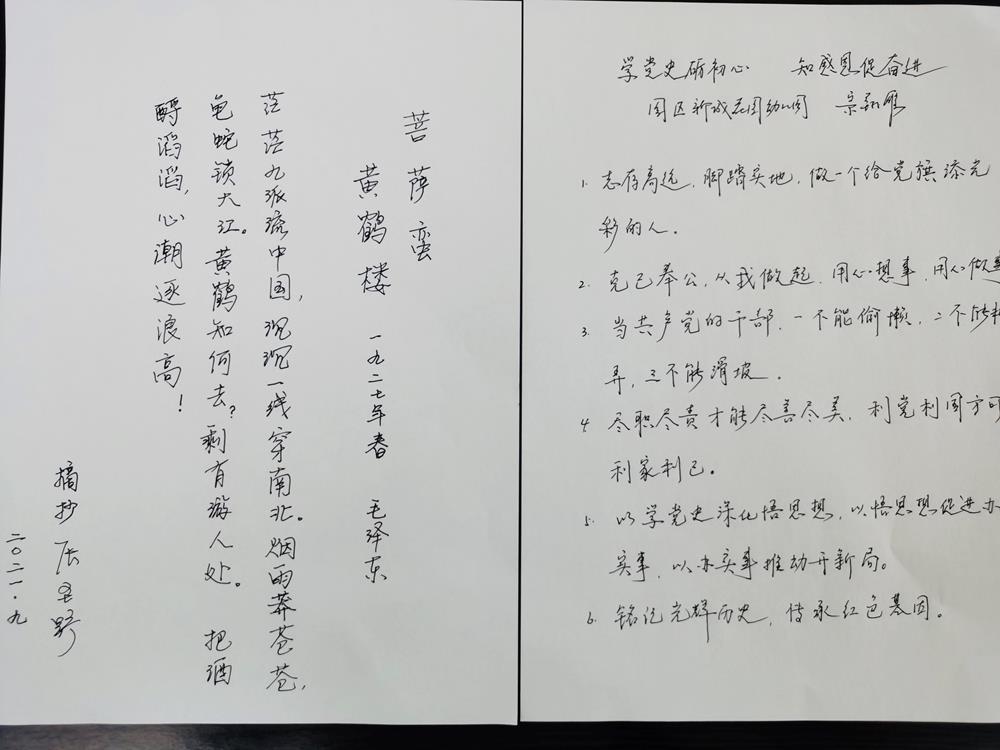 菩萨蛮
黄鹤楼 一九二七年春 毛泽东
茫茫九派流中国，沉沉一线穿南北。烟雨莽苍苍，
龟蛇锁大江。黄鹤知何去？剩有游人处。 把酒
酹滔滔，心潮逐浪高！
摘抄
二〇二一·九
学党史砺初心 知感恩促奋进
园区新城花园幼儿园
1. 志存高远，脚踏实地，做一个给党旗添光
彩的人。
2. 克己奉公，从我做起，用心想事，用心做事
3. 当共产党的干部，一不能偷懒，二不能耍
弄，三不能滑坡。
4 尽职尽责才能尽善尽美，利党利国方可
利家利己。
5. 以学党史深化悟思想，以悟思想促进办
实事，以办实事推动开新局。
6. 铭记光辉历史，传承红色基因。